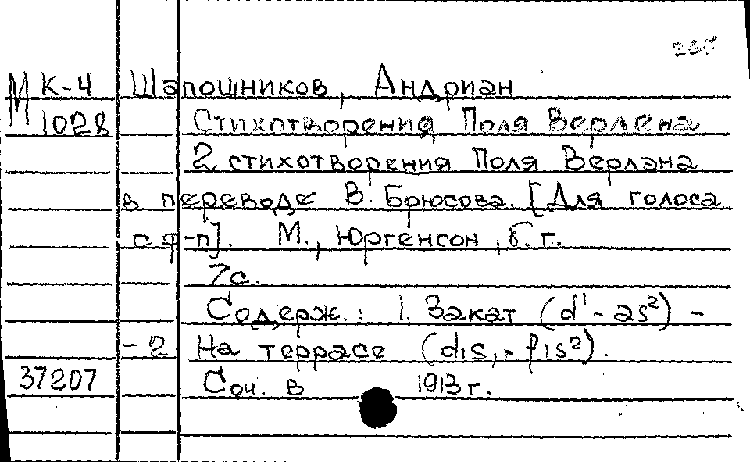 М К-4 Шапошников, Андриан
1028 Стихотворения Поля Верлена
2 стихотворения Поля Верлэна
в переводе В. Брюсова. [Для голоса
с ф-п]. М., Юргенсон, б. г.
7с.
Содерж.: 1. Закат (d¹ - as²) -
- 2 На террасе (dis, - fis²).
37207 Соч. в 1913 г.